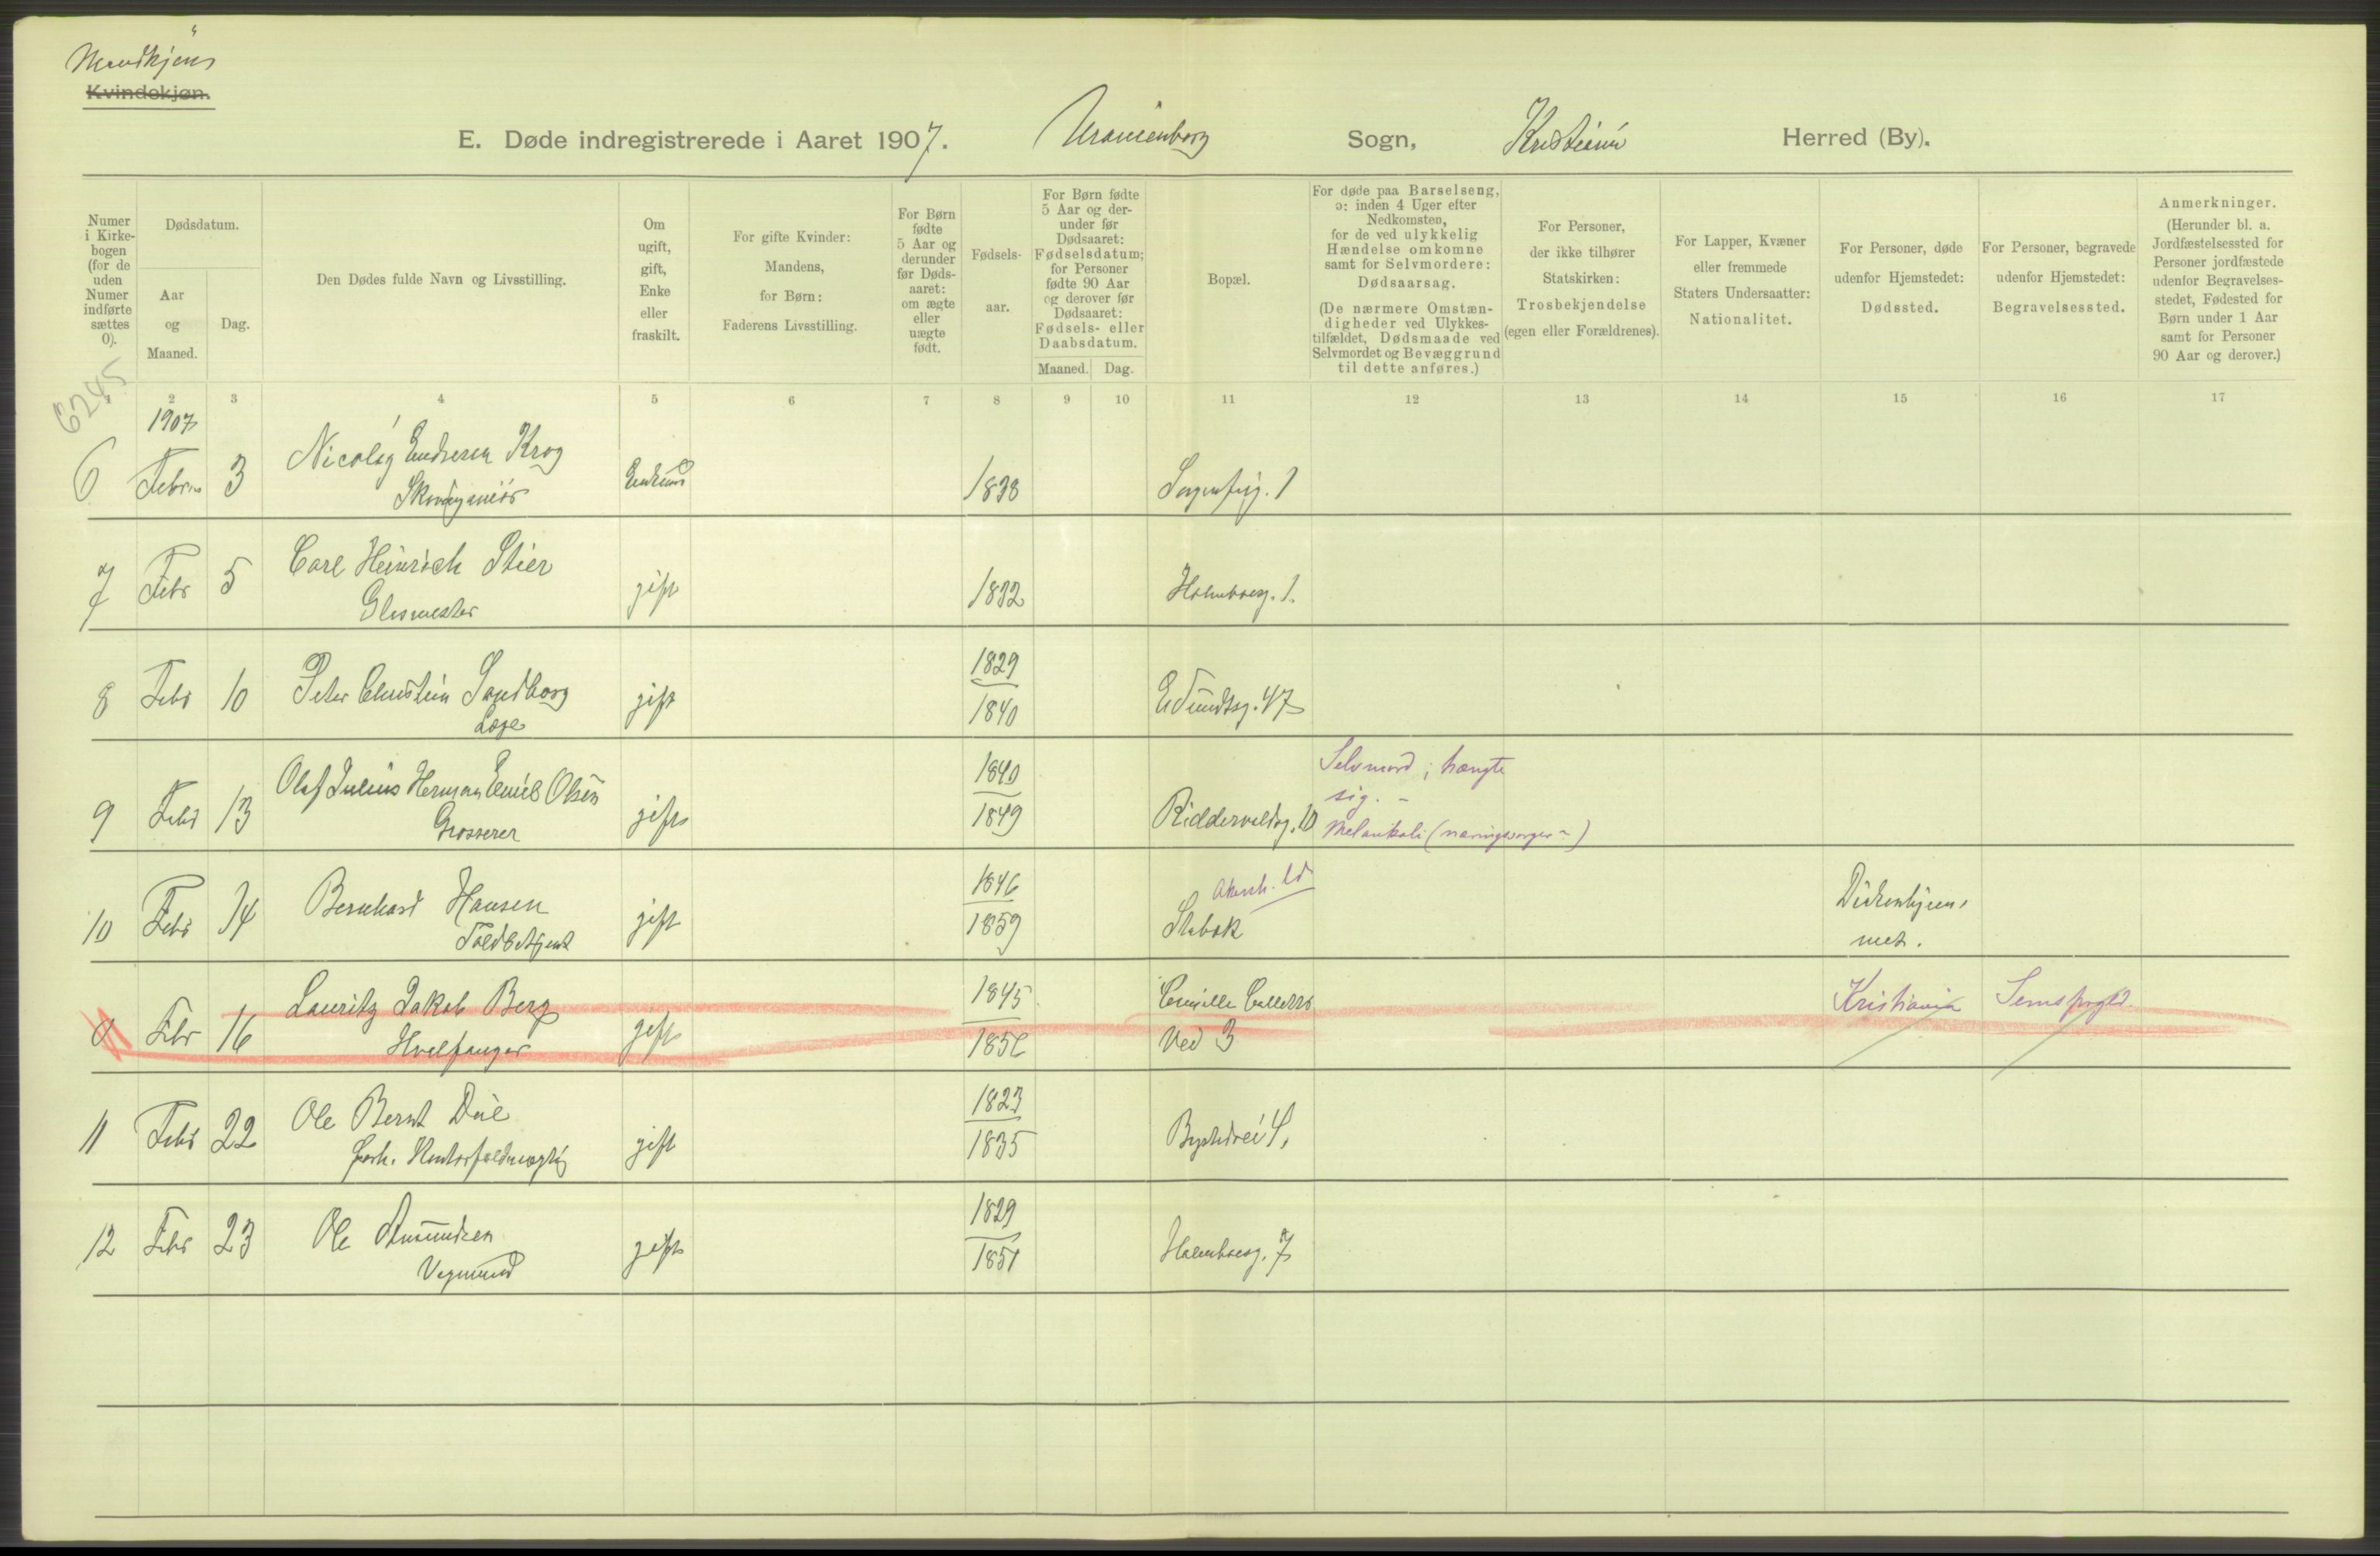 Mandkjøn
Kvindekjøn.
E. Døde indregistrerede i Aaret 1907. Uranienborg Sogn, Kristiania Herred (By).
Numer
i Kirke-
bogen
(for de
uden
Numer
indførte
sættes
0).
Dødsdatum.
Aar
og
Maaned.
Dag.
Den Dødes fulde Navn og Livsstilling.
Om
ugift,
gift,
Enke
eller
fraskilt.
For gifte Kvinder:
Mandens,
for Børn:
Faderens Livsstilling.
For Børn
fødte
5 Aar og
derunder
før Døds-
aaret:
om ægte
eller
uægte
født.
Fødsels-
aar.
For Børn fødte
5 Aar og der-
under før
Dødsaaret:
Fødselsdatum;
for Personer
fødte 90 Aar
og derover før
Dødsaaret:
Fødsels- eller
Daabsdatum.
Maaned.
Dag.
Bopæl.
For døde paa Barselseng,
ɔ: inden 4 Uger efter
Nedkomsten,
for de ved ulykkelig
Hændelse omkomne
samt for Selvmordere:
Dødsaarsag.
(De nærmere Omstæn-
digheder ved Ulykkes-
tilfældet, Dødsmaade ved
Selvmordet og Bevæggrund
til dette anføres.)
For Personer,
der ikke tilhører
Statskirken:
Trosbekjendelse
(egen eller Forældrenes).
For Lapper, Kvæner
eller fremmede
Staters Undersaatter:
Nationalitet.
For Personer, døde
udenfor Hjemstedet:
Dødssted.
For Personer, begravede
udenfor Hjemstedet:
Begravelsessted.
Anmerkninger.
(Herunder bl. a.
Jordfæstelsessted for
Personer jordfæstede
udenfor Begravelses-
stedet, Fødested for
Børn under 1 Aar
samt for Personer
90 Aar og derover.)
6245
2 3 4 5 6 7 8 9 10 11 12 13 14 15 16 17
1907
6 Febr. 3 Nicolay Endresen Krog 1838 Sorgenfrig. 1
7 Febr 5 Carl Heinrich Stier gift 1832 Holmboesg. 1.
Glasmester
8 Febr 10 Peter Christian Sandborg gift 1829 1840 Eilert Sundtsg. 47
Læge
9 Febr 13 Olaf Julius Herman Emil Olsen gift 1840 1849 Riddervoldsg. 10 Selvmord; hængte
sig. -
Grosserer Melankoli (næringssorger -)
10 Febr 14 Bernhard Hansen gift 1846 1859 Akersh. Stabæk
Toldbetjent
0 11 Febr 16 Lauritz Jakob Berg gift 1845 Camilla Colletts Kristiania
Hvalfanger Vei 3
11 Febr 22 Ole Bernt Due gift 1823 1835 Bygdøvei 4,
forh. Kontorfuldmægtig
12 Febr 23 Ole Amundsen gift 1829 1851 Holmboesg. 7
Vegmand